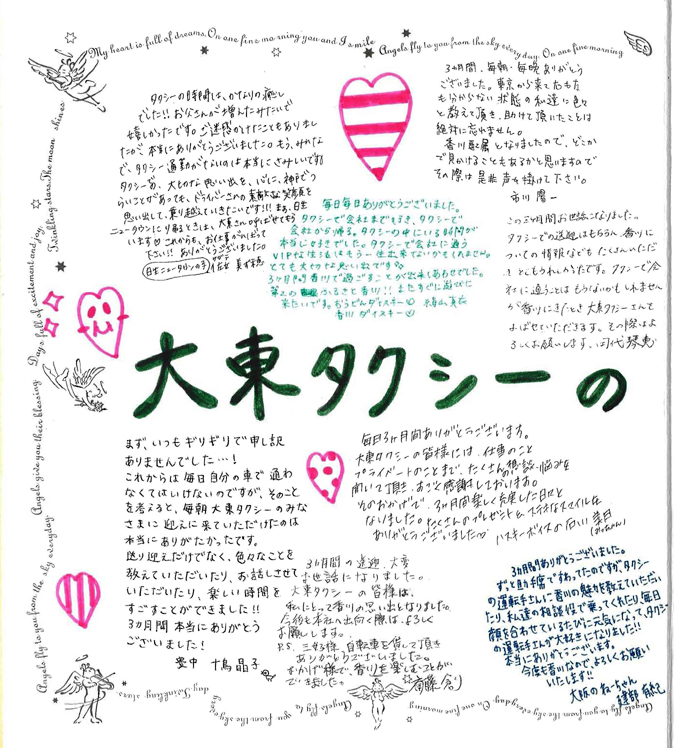 My heart is full of dreams. On one fine morning you and I smile
Angels fly to you from the sky every day. On one fine morning
Twinkling stars. The moon shines
Days full of excitement and joy.
Angels give you their blessing
Angels fly to you from the sky everyday
タクシーの時間は、かなりの癒し
でした!! お父さんが増えたみたいで
嬉しかったです。ご迷惑かけたこともありまし
たが、本当にありがとうございました。もう、みれなく
て、タクシー通勤がないのは本当にさみしいです!
思い出して、乗り越えていきたいです!!! また、日生
ニュータウンに
下さい!! ありがとうございました。
日生ニュータウンの子
3ヵ月間、毎朝・毎晩ありがとう
ございました。東京から来て右も左
も分からない状態の私達に色々
と教えて頂き、助けて頂いたことは
絶対に忘れません。
香川配属となりましたので、どこか
で見かけることもあるかと思いますので
その際は是非声を掛けて下さい。
毎日毎日ありがとうございました。
タクシーで会社まで行き、タクシーで
会社から帰る。タクシーの中にいる時間が
本当に好きでした。タクシーで会社に通う
VIPな生活はもう一生出来ないかもしれません。
とても大切な思い出です。
3ヶ月間香川で過ごすことが出来しあわせでした。
第2のふるさと香川!! またすぐに遊びに
来たいです。おうどんダイスキー
香川ダイスキー
この三ヶ月間お世話になりました。
タクシーでの送迎はもちろん、香川に
ついての情報などもたくさんいただ
きとてもうれしかったです。タクシーで会
社に通うことはもうないかもしれません
が香川にきたとき大東タクシーさんを
よばせていただきます。その際はよ
ろしくお願いします。
大東タクシーの
まず、いつもギリギリで申し訳
ありませんでした…!
これからは毎日自分の車で通わ
なくてはいけないのですが、そのこと
を考えると、毎朝大東タクシーのみな
さまに迎えに来ていただけたのは
本当にありがたかったです。
送り迎えだけでなく、色々なことを
教えていただいたり、お話しさせて
いただいたり、楽しい時間を
すごすことができました!!
3ヵ月間本当にありがとう
ございました!
毎日3ヶ月間ありがとうございます。
大東タクシーの皆様には、仕事のこと
プライベートのことまで、たくさん相談・悩みを
聞いて頂き、
そのおかげで、3ヶ月間楽しく充実した日々と
なりました。たくさんのプレゼントと、ステキなスマイルを
ありがとうございました♡
ハスキーボイスの石川
3ヵ月間の送迎、大変
お世話になりました。
大東タクシーの皆様は、
私にとって香川の思い出となりました。
今後も本社へ出向く際は、よろしく
お願いします。
P.S. 三好様、自転車を貸して頂き
ありがとうございました。
おかげ様で、香川を楽しむことが
できました。
3カ月間ありがとうございました。
ずっと助手席ですわってたのですが、タクシー
の運転手さんに香川の魅力を教えていただい
たり、私達の相談役で乗ってくれたり、毎日
顔を合わせているたびに元気になって、タクシー
の運転手さんが大好きになりました!!
本当にありがとうございます。
今度香川なので、よろしくお願い
いたします!!
大阪のねーちゃん